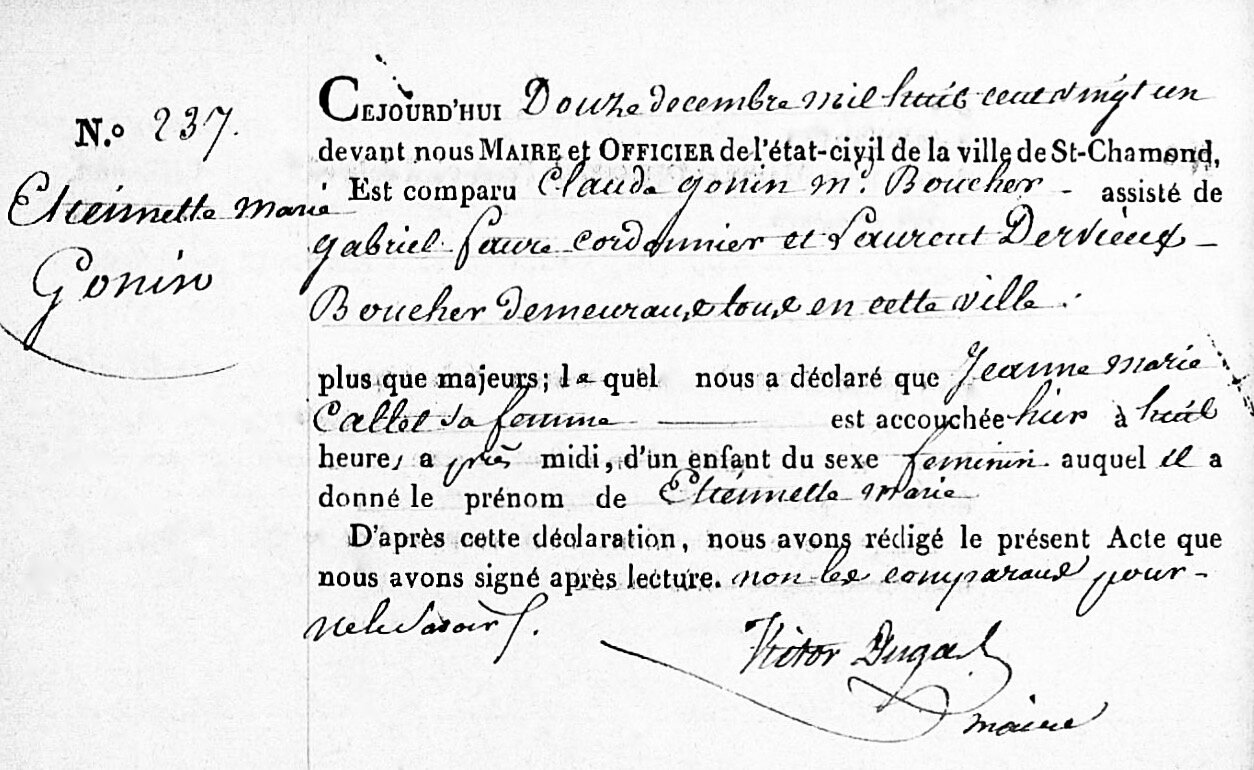 N.º 237.
Etiennette marie
Gonin
CEJOURD'HUI Douze decembre mil huit cent vingt un
devant nous MAIRE et OFFICIER de l'état-civil de la ville de St-Chamond,
Est comparu Claude gonin md. Boucher - assisté de
gabriel faure cordonnier et Laurent Dervieux -
Boucher demeurant tous en cette ville.
plus que majeurs; le quel nous a déclaré que Jeanne Marie
Callet sa femme est accouchée hier à huit
heures après midi, d'un enfant du sexe feminin auquel il a
donné le prénom de Etiennette marie
D'après cette déclaration, nous avons rédigé le présent Acte que
nous avons signé après lecture. non les comparans pour -
ne le savoir.
Victor Dugas
maire